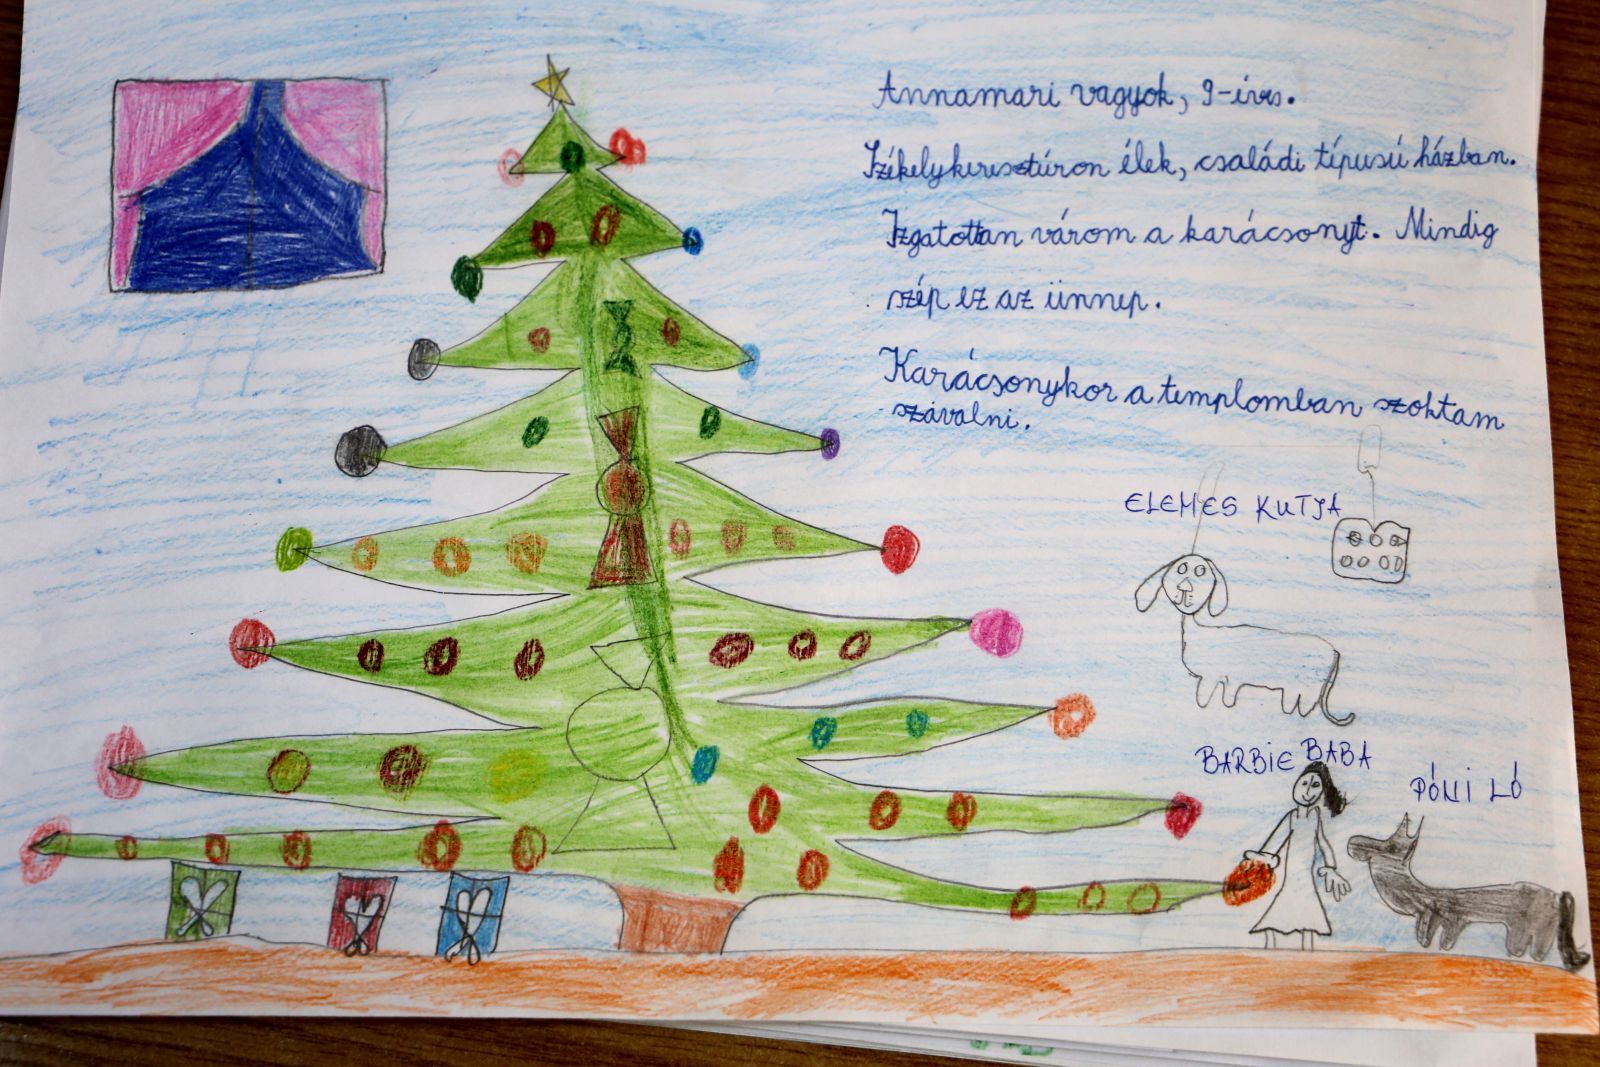 Annamari vagyok, 9-éves.
Székelykeresztúron élek, családi típusú házban.
Izgatottan várom a karácsonyt. Mindig
szép ez az ünnep.
Karácsonykor a templomban szoktam
szavalni.
ELEMES KUTYA
BARBIE BABA
PÓNI LÓ